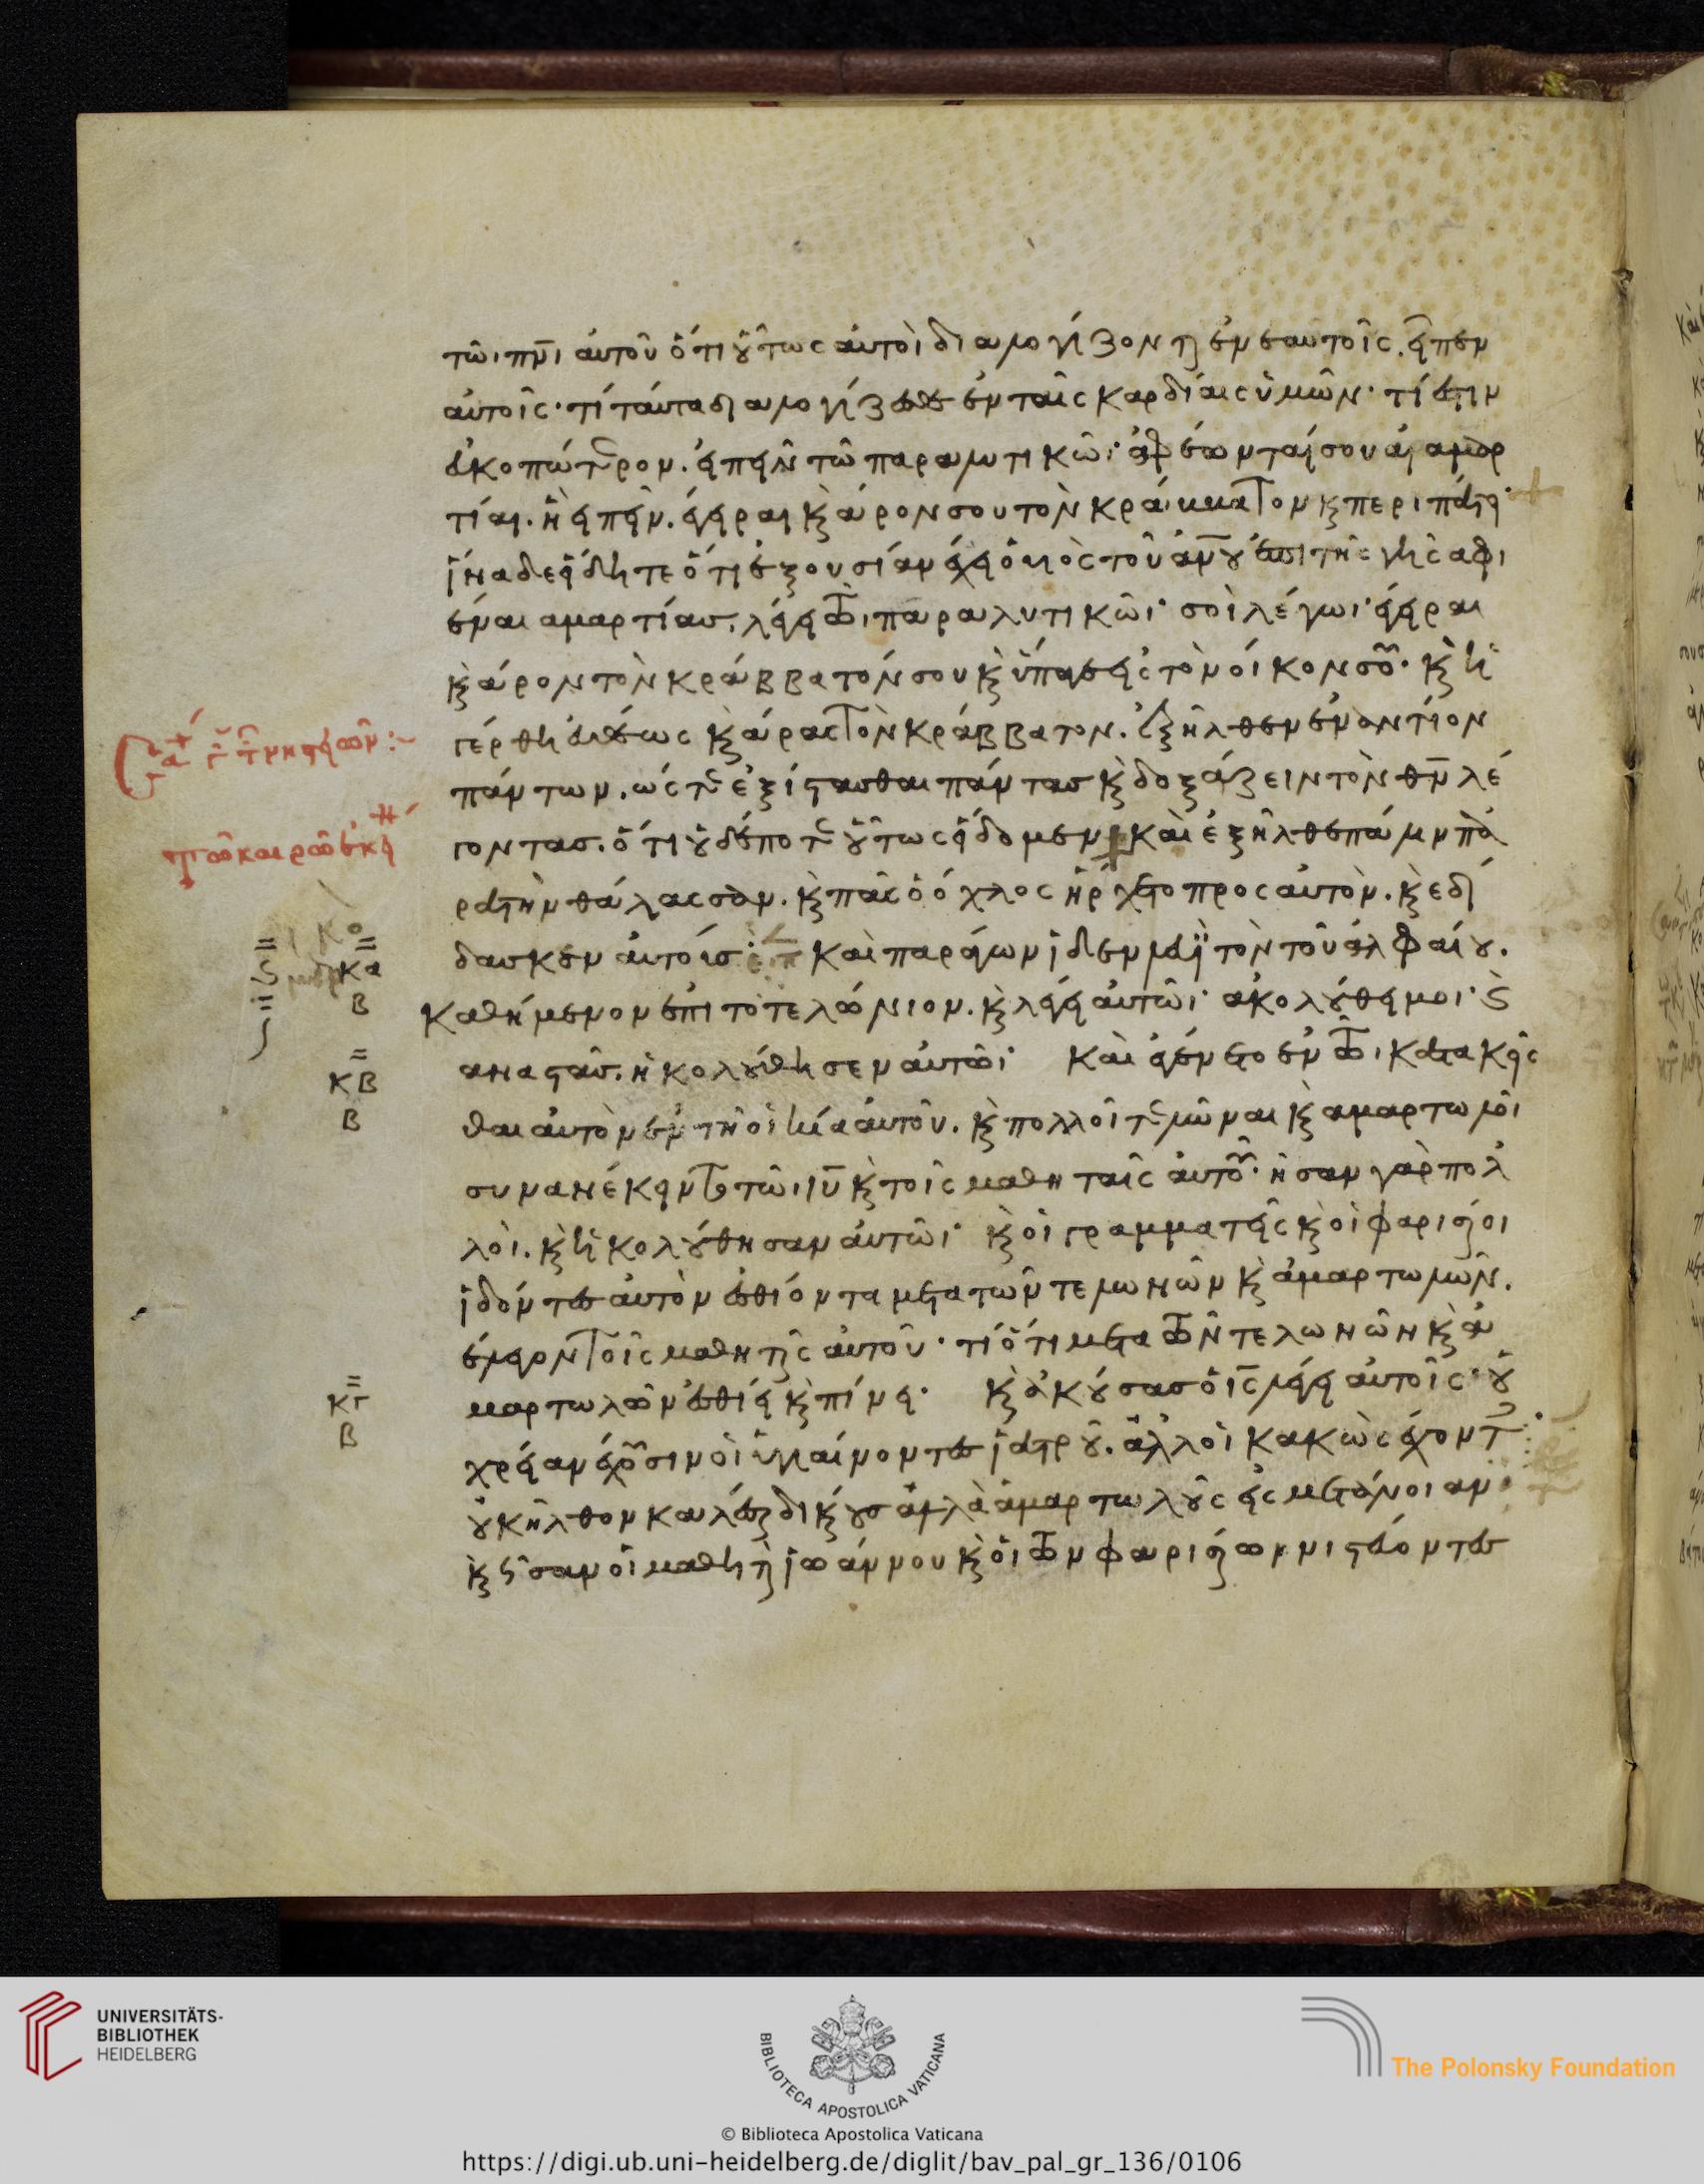 τῶι πνι αὐτοῦ ὅτι οὕτως αὐτοὶ διαλογίζονται ἐν ἑαυτοῖς. εἶπεν
αὐτοῖς· τί ταῦτα διαλογίζεσθε ἐν ταῖς καρδίαις ὑμῶν· τί ἐστιν
εὐκοπώτερον. εἰπεῖν τῶ παραλυτικῶι· ἀφέωνταί σου αἱ αμαρ
τίαι. ἢ εἰπεῖν. έγειραι κ ἆρον σου τὸν κράββατον κ περιπάτει·
ἵνα δε εἴδητε ὅτι ἐξουσίαν έχει ὁ υιὸς τοῦ ἀνου ἐπὶ τῆς γῆς αφι
έναι αμαρτίας. λέγει τῶι παραλυτικῶι· σοὶ λέγωι· έγειραι
κ ἆρον τὸν κράββατόν σου κ ὕπαγε εἰς τὸν οἶκον σου. κ ἠ
γέρθη εὐθέως κ ἄρας τὸν κράββατον. ἐξῆλθεν ἐναντίον
πάντων. ὥς τε ἐξίστασθαι πάντας κ δοξάζειν τὸν θν λέ
γοντας. ὅτι οὐδέποτε οὕτως εἴδομεν καὶ ἐξῆλθε πάλιν πα
ρὰ τὴν θάλασσαν. κ πᾶς ὁ όχλος ἤρχετο προς αὐτὸν. κ εδί
δασκεν αὐτούς· καὶ παράγων ἴδεν λευὶ τὸν τοῦ ἀλφαίου.
καθήμενον επὶ το τελώνιον. κ λέγει αὐτῶι· ακολούθει μοι· κ
αναστὰς. ἠκολούθησεν αὐτῶι· καὶ ἐγένετο ἐν τῶι κατακεῖς
θαι αὐτὸν ἐν τῆ οἰκία αὐτοῦ. κ πολλοὶ τελῶναι κ αμαρτωλοὶ
συνανέκειντο τῶι ιυ κ τοῖς μαθηταῖς αὐτοῦ· ἦσαν γὰρ πολ
λοὶ. κ ἠκολούθησαν αὐτῶι· κ οἱ γραμματεῖς κ οἱ φαρισαίοι
ἰδόντες αὐτὸν ἐσθίοντα μετα τῶν τελωνῶν κ ἁμαρτωλῶν.
έλεγον τοῖς μαθηταῖς αὐτοῦ· τί ὅτι μετα τῶν τελωνῶν κ ἁ
μαρτωλῶν ἐσθίει κ πίνει· κ ἀκούσας ὁ ις λέγει αὐτοῖς· οὐ
χρείαν έχουσιν οἱ ὑγιαίνοντες ἰατροῦ. ἀλλ οἱ κακῶς έχοντ
οὐκ ῆλθον καλέσαι δικαίους ἀλλὰ ἁμαρτωλοὺς εἰς μετάνοιαν·
κ ῆσαν οἱ μαθηταὶ ἰωάννου κ οἱ τῶν φαρισαίων νηστεύοντες
κα
β
κβ
β
κγ
β
UNIVERSITÄTS-
BIBLIOTHEK
HEIDELBERG
BIBLIOTECA APOSTOLICA VATICANA
The Polonsky Foundation
© Biblioteca Apostolica Vaticana
https://digi.ub.uni-heidelberg.de/diglit/bav_pal_gr_136/0106